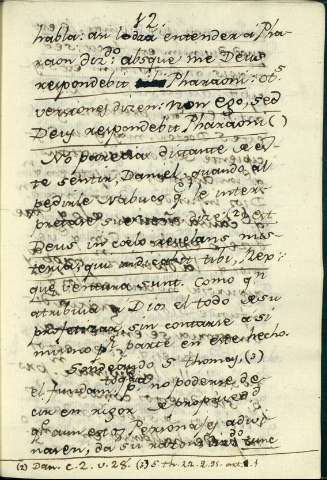 12.
habla: asi lo dexa entender a Pha-
raon diz.do: absque me Deus
respondebit Pharaoni: ot.s
versiones dizen: non ego, sed
Deus respondebit Pharaoni ( )
No parecia distante de es-
te sentir, Daniel, quando al
pedirle Nabuco q.e le inter-
pretase su dize (2) est
Deus in coelo revelans mis-
teria, qui indicavit tibi, Rex;
que ventura sunt. Como q.n
atribuia a Dios el todo de su
profetizar, sin contarse a si
mismo p.r parte en este hecho.
Sondeando S. Thomas, (3)
el fundam.to p.a no poderse de-
cir en rigor
q.e aun estas Personas adivi-
naven, da su razon
(2) Dan. c. 2. v. 28. (3) S. Th. 2.2. q. 95. art. 1.